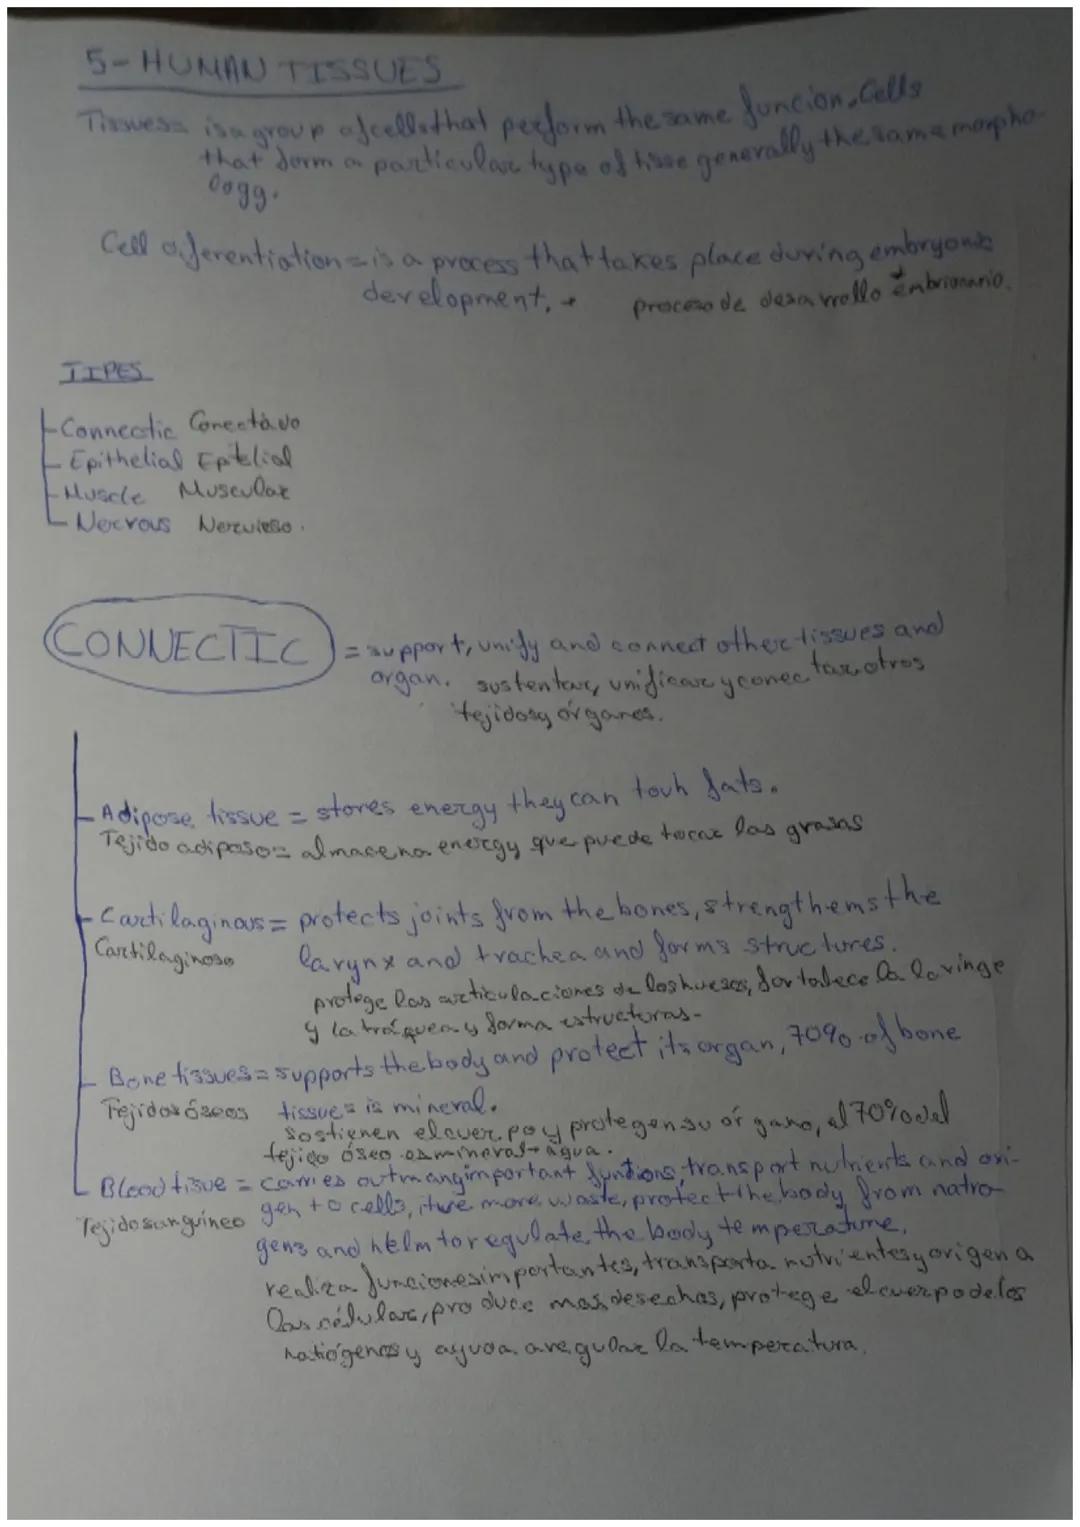 5-HUMAN TISSUES
Tissues= is a group of cells that perform the same funcion. Cells
that form a particular type of tisse generally the same morpho-
logy.
Cell diferentiation = is a process that takes place during embryonic
development. → proceso de desarrollo embrionario.
TIPES
-Connectic Conectivo
-Epithelial Epitelial
-Muscle Muscular
-Nervous Nervioso.
CONNECTIC = support, unify and connect other tissues and
organ. sustentar, unificar y conectar otros
tejidos y órganos.
-Adipose tissue = stores energy they can touh fats.
Tejido adiposo= almacena energy que puede tocar las grasas
-Cartilaginous= protects joints from the bones, strengthems the
Cartilaginoso larynx and trachea and forms structures.
protege las articulaciones de los huesos, fortalece la laringe
y la tráquea y forma estructuras-
- Bone tissues= supports the body and protect its organ, 70% of bone
Tejidos óseos tissue= is mineral.
sostienen el cuerpo y protegen su órgano, el 70% del
tejido óseo es mineral→agua.
- Blood tisue = carries out many important funtions, transport nutrients and ori-
Tejido sanguíneo gen to cells, more waste, protect the body from natro-
gens and helm to regulate the body temperature.
realiza funciones importantes, transporta nutrientes y origen a
las células, produce mas desechos, protege el cuerpo de los
natiógenos y ayuda a regular la temperatura.